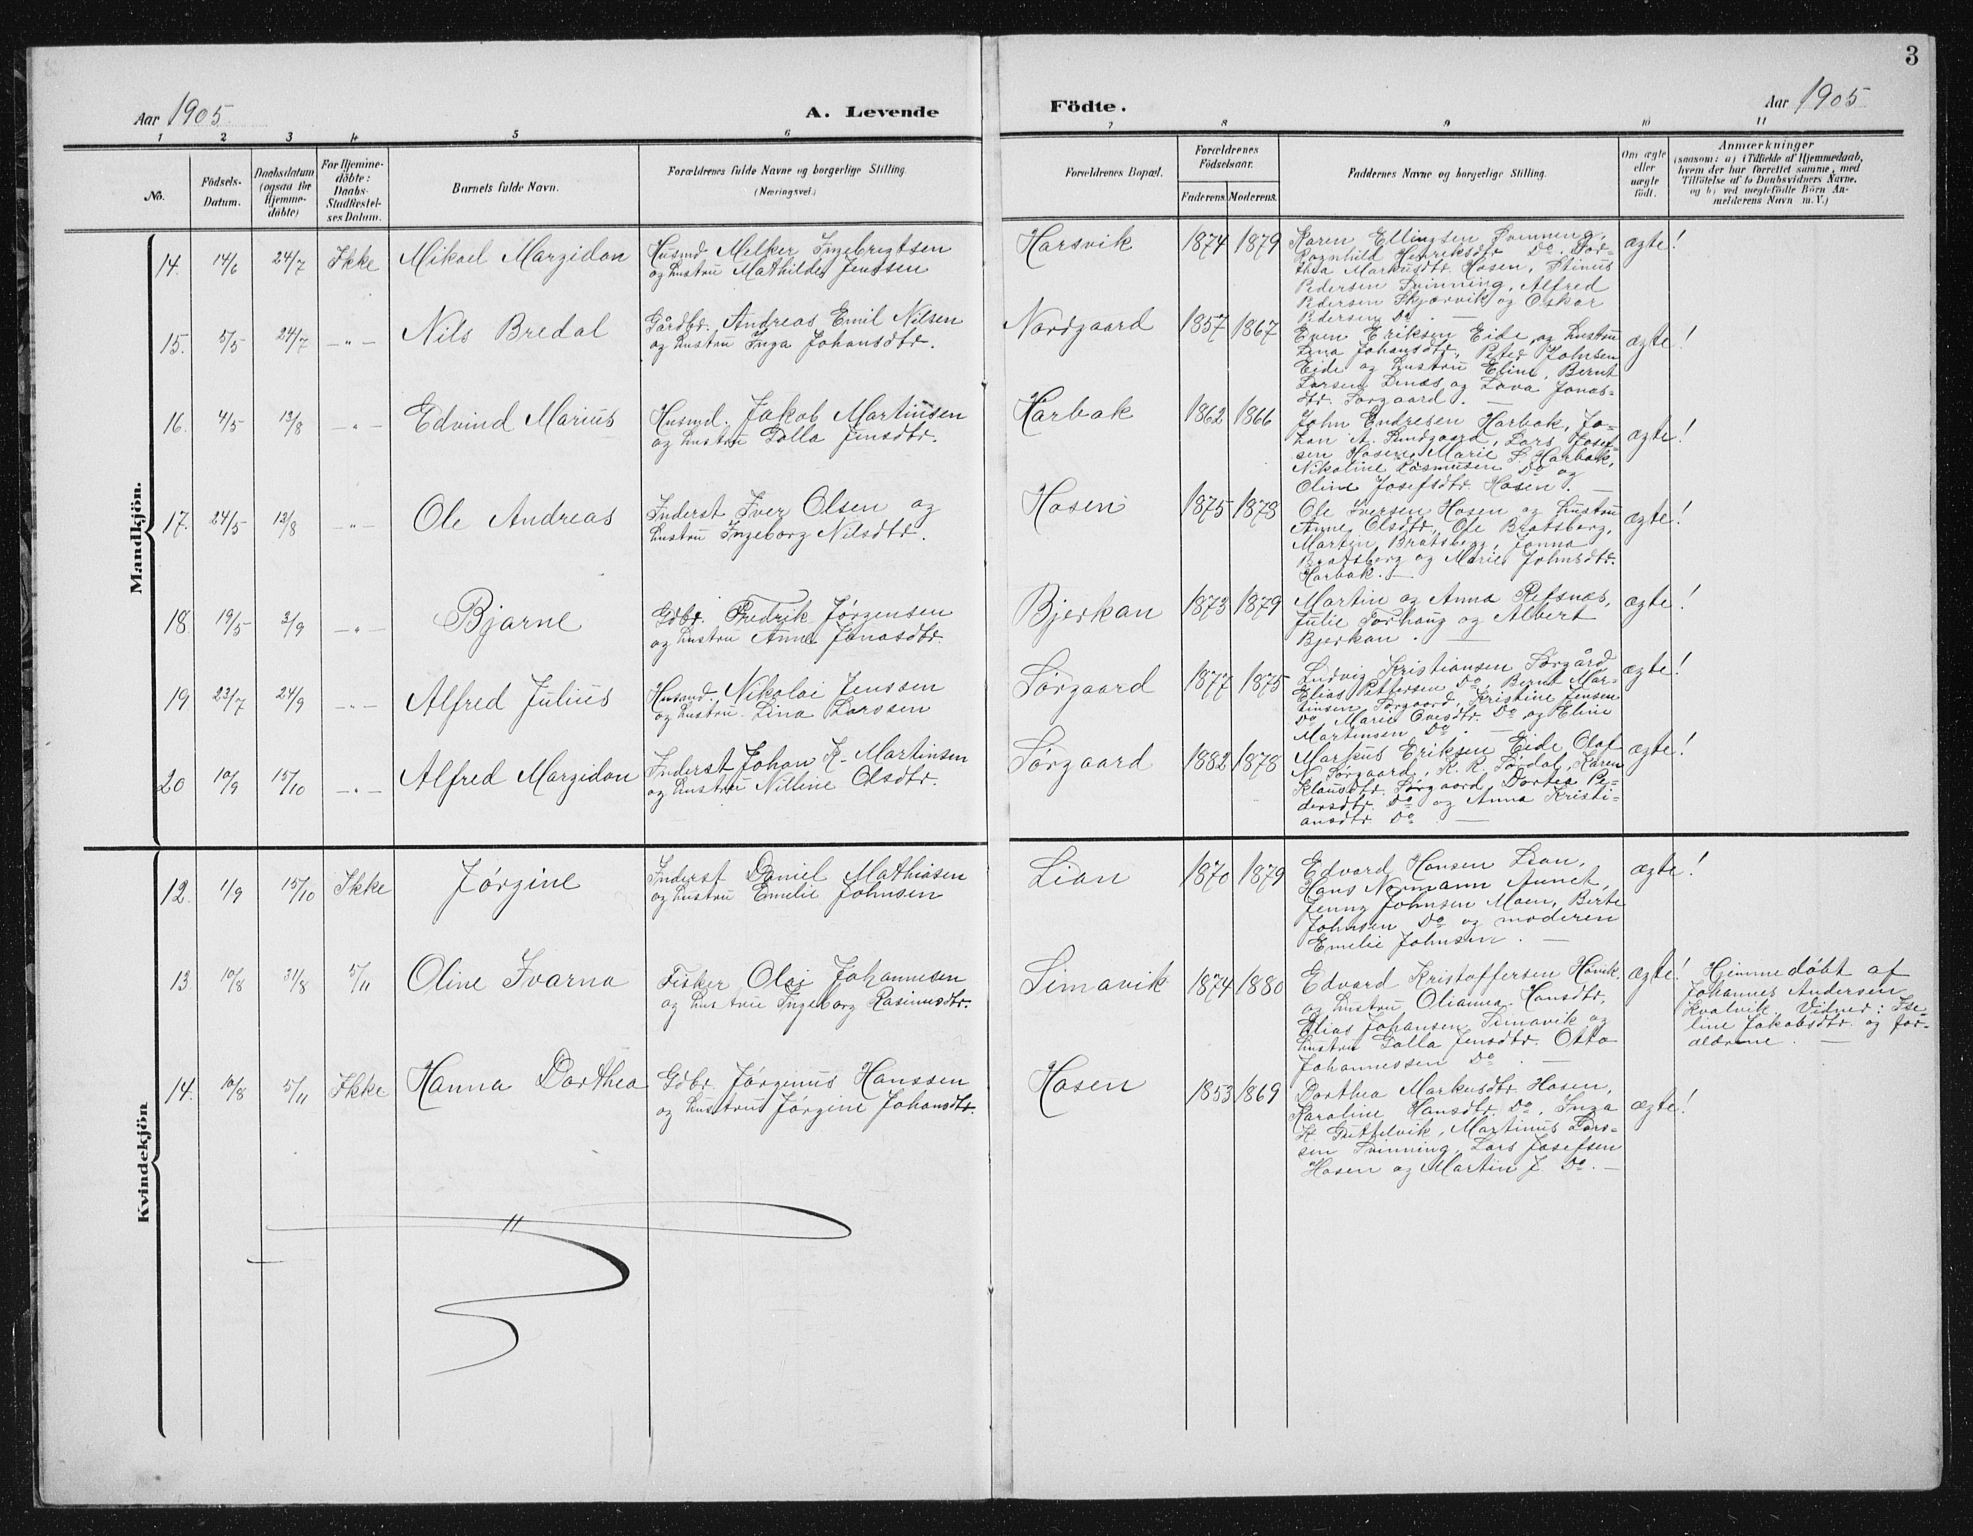 3
Aar 1905
A. Levende
Födte.
Aar 1905
1 2 3 4 5 6 7 8 9 10 11
No.
Födsels-
Datum.
Daabsdatum
(ogsaa for
Hjemme-
döbte)
For Hjemme-
döbte:
Daabs-
Stadfæstel-
ses Datum.
Barnets fulde Navn.
Forældrenes fulde Navne og borgerlige Stilling
(Næringsvei.)
Forældrenes Bopæl.
Forældrenes
Födselsaar.
Faderens. Moderens.
Faddernes Navne og borgerlige Stilling.
Om ægte
eller
uægte
födt.
Anmærkninger
(saasom: a) i Tilfælde af Hjemmedaab,
hvem der har forrettet samme, med
Tilföielse af to Daabsvidners Navne,
og b) ved uægtefödte Börn An-
melderens Navn m. V.)
Mandkjön.
14. 14/6 24/7 Ikke Mikael Margidon
Husmd Melker Ingebrigtsen
og hustru Mathilde Jenssen
Harsvik 1874 1879
Karen Ellingsen Svinning,
Ragnhild Henriksdtr Do, Dor-
thea Markusdtr. Hosen, Stinus
Pedersen Svinning, Alfred
Pedersen Skjærvik og Oskar
Pedersen Do. —
ægte!
15. 5/5 24/7 -"- Nils Bredal
Gårdbr. Andreas Emil Nilsen
og hustru Inga Johansdtr.
Nordgaard 1857 1867
Even Eriksen Eide og hustru
Lina Johansdtr, Peter Johnsen
Eide og hustru Eline, Bernt
Larsen Lenæs og Lava Jonas-
dtr. Sørgaard. —
ægte!
16. 4/5 13/8 -"- Edvind Marius
Husmd. Jakob Martinsen
og hustru Golla Jensdtr.
Harbak 1862 1866
John Endresen Harbak, Jo-
han A. Sundgaard, Lars Josef-
sen Hosen, Marie P. Harbak,
Nikoline Rasmusen Do og
Oline Josefsdtr. Hosen. —
ægte!
17. 24/5 13/8 -"- Ole Andreas
Inderst Iver Olsen og
hustru Ingeborg Nilsdtr.
Hosen 1875 1873
Ole Iversen Hosen og hustru
Anne Olsdtr, Ole Bratsberg,
Martin Bratsberg, Jonna
Bratsberg og Marie Johnsdtr.
Harbak. —
ægte!
18. 19/5 3/9 -"- Bjarne
Gdbr. Fredrik Jørgensen
og hustru Anna Jonasdtr.
Bjerkan 1873 1879
Martin og Anna Refsnæs,
Julie Torhaug og Albert
Bjerkan. —
ægte!
19 23/7 24/9 -"- Alfred Julius
Husmd. Nikolai Jenssen
og hustru Lina Larssen
Sørgaard 1877 1875
Ludvig Kristiansen Sørgård
Elias Pettersen Do, Bernt Mar-
tinsen Sørgaard, Kristine Jensen
Do, Marie Ovesdtr. Do og Eline
Martensen Do. —
ægte!
20 10/9 15/10 -"- Alfred Margidon
Inderst Johan K. Martinsen
og hustru Nilsine Olsdtr.
Sørgaard 1882 1878
Markus Eriksen Eide Olaf
N. Sørgaard, K. R. Sørdal, Karen
Klausdtr. Sørgaard, Dortea Pe-
dersdtr. Do og Anna Kristi-
ansdtr. Do —
ægte!
Kvindekjön
12. 1/9 15/10 Ikke Jørgine
Inderst Daniel Mathiasen
og hustru Emelie Johnsen
Lian 1870 1879
Edvard Hansen Lian,
Hans Normann Aunet,
Jenny Johnsen Moen, Berte
Johnsen Do og moderen
Emelie Johnsen. —
ægte!
13 10/8 31/8 5/11 Oline Ivarna
Fisker Olaj Johannesen
og hustru Ingeborg Rasmusdtr.
Simavik 1874 1880
Edvard Kristoffersen Håvik
og hustru Olianna Hansdtr,
Elias Johansen Simavik og
hustru Golla Jensdtr. Otto
Johannessen Do. —
ægte!
Hjemmedöbt af
Johannes Andersen
Kvalvik. Vidner: Ise-
line Jakobsdtr. og for-
ældrene. —
14. 10/8 5/11 Ikke Hanna Dorthea
Gdbr Jørginus Hanssen
og hustru Jørgine Johansdtr.
Hosen 1853 1869
Dorthea Markusdtr Hosen,
Karoline Hansdtr. Do, Inga
H. Guttelvik, Martinus Lars-
sen Svinning, Lars Josefsen
Hosen og Martin J. Do. —
ægte!
"